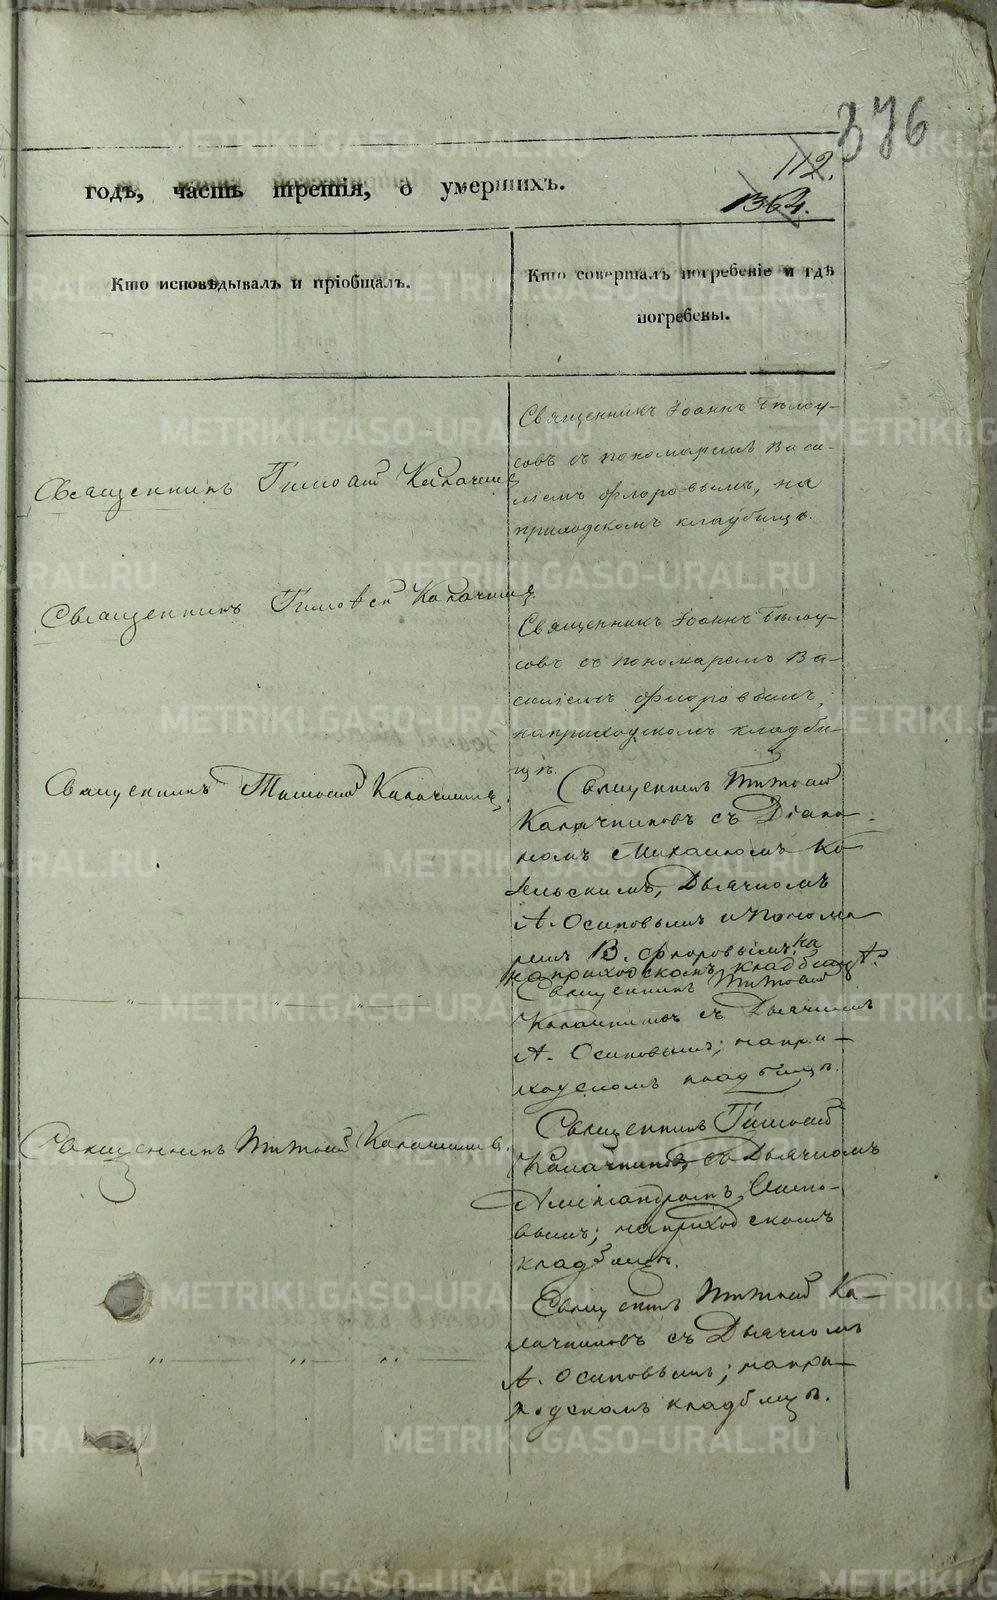 376
112.
1364.
годъ, часть третія, о умершихъ.
Кто исповѣдывалъ и пріобщалъ.
Кто совершалъ погребеніе и гдѣ
погребены.
Священникъ Іоаннъ Бѣлоу-
совъ съ пономаремъ Васи-
ліемъ Флоровымъ, на
приходскомъ кладбищѣ.
Священникъ Тимоѳей
Священникъ Тимоѳей
Священникъ Іоаннъ Бѣлоу-
совъ съ пономаремъ Ва-
силіемъ Флоровымъ,
на приходскомъ кладби-
щѣ.
Священникъ Тимоѳей
Священникъ Тимоѳей
Калачниковъ съ Діако-
номъ Михаиломъ
Дьячкомъ
А. Осиповымъ и Понома
ремъ В. Флоровымъ, на
на приходскомъ кладбищѣ.
" "
Священникъ Тимоѳей
Калачниковъ съ Дьячкомъ
А. Осиповымъ; на при-
ходскомъ кладбищѣ.
Священникъ Тимоѳей
Священникъ Тимоѳей
Калачниковъ, съ Дьячкомъ
Александромъ Осипо-
вымъ; на приходскомъ
кладбищѣ.
Священ. Тимоѳей Ка-
лачниковъ съ Дьячкомъ
" " "
А. Осиповымъ; на при-
ходскомъ кладбищѣ.
METRIKI.GASO-URAL.RU